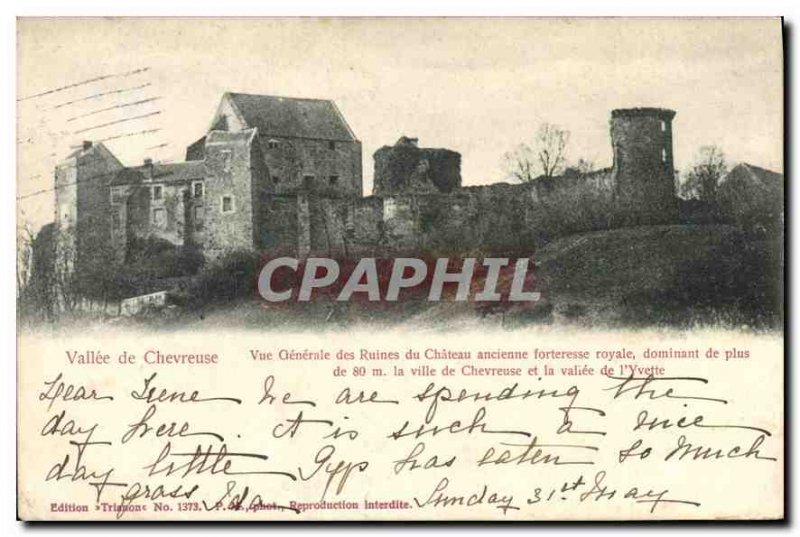 CPAPHIL
Vallée de Chevreuse
Vue Générale des Ruines du Château ancienne forteresse royale, dominant de plus
de 80 m. la ville de Chevreuse et la vallée de l'Yvette
Dear Irene We are spending the
day here. It is such a nice
day little Gyp has eaten so much
grass Ida Sunday 31st May
Edition »Trianon« No. 1373. phot., Reproduction interdite.